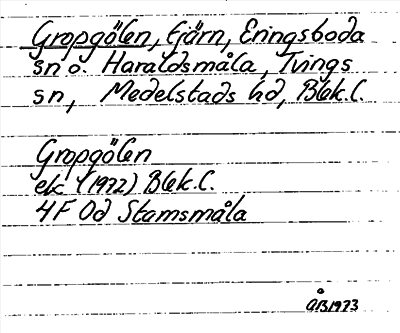 Gropgölen, tjärn, Eringsboda
sn o. Haraldsmåla, Tvings
sn, Medelstads hd, Blek.l.
Gropgölen
ek (1972) Blek.l.
4F 0d Stamsmåla
ÅB1973